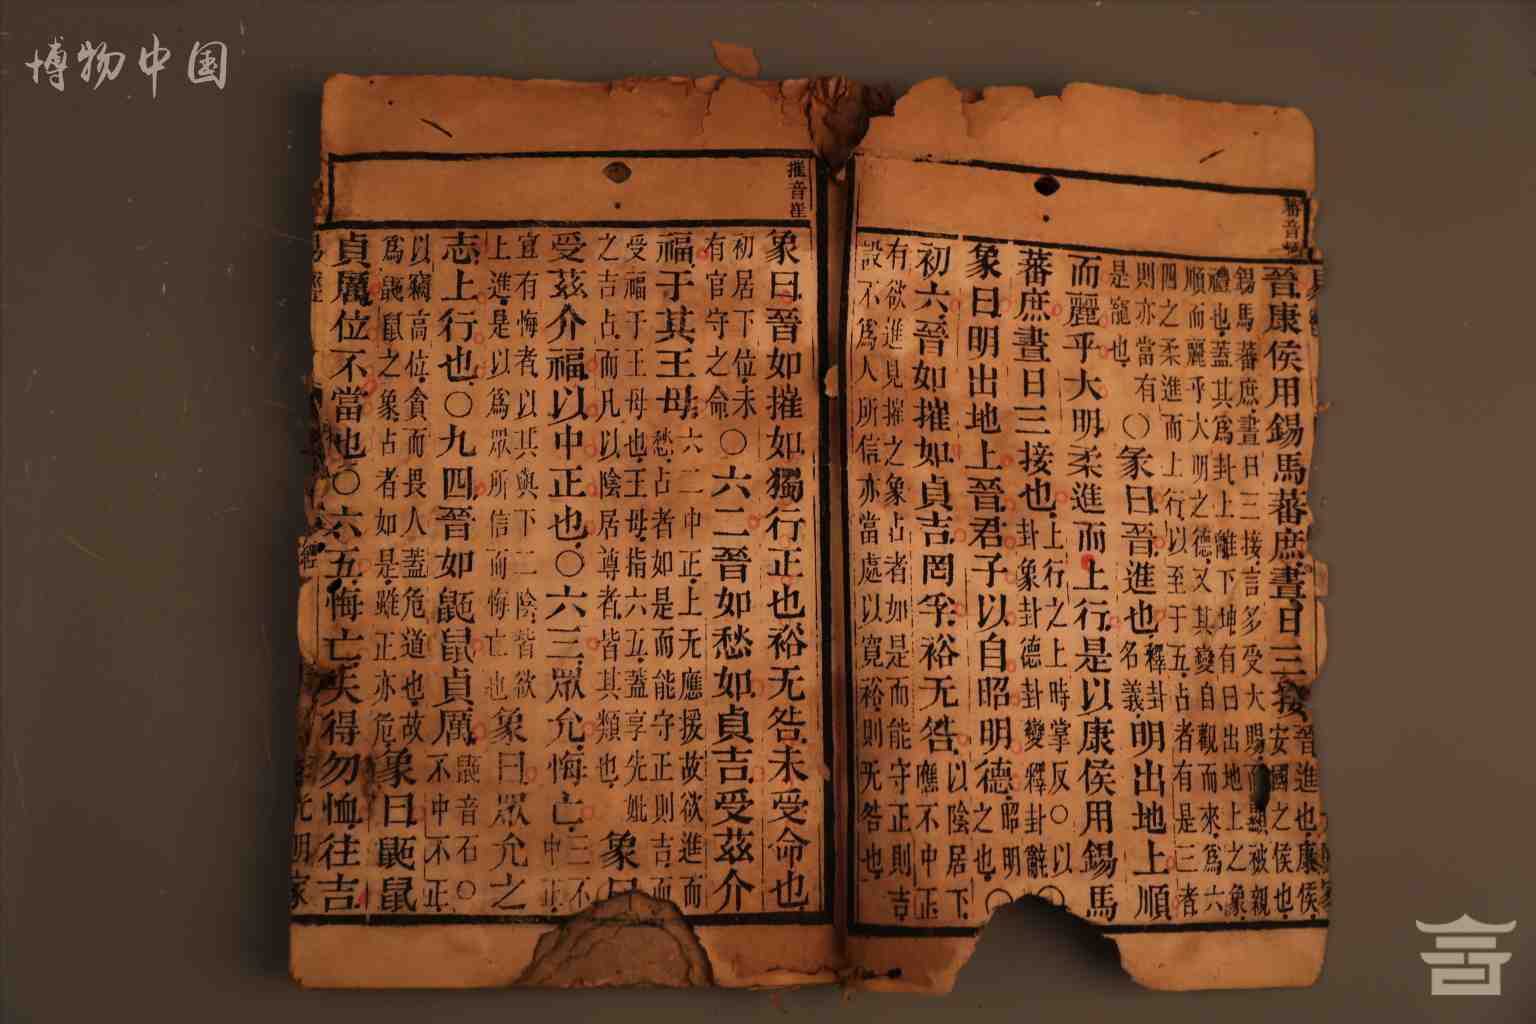 博物中国
蕃音
晉康侯用錫馬蕃庶晝日三接
晉進也康侯
安國之侯也
錫馬蕃庶晝日三接言多受大賜而顯被親
禮也蓋其爲卦上離下坤有日出地上之象
順而麗乎大明之德又其變自觀而來爲六
四之柔進而上行以至于五占者有是三者
則亦當有
是寵也
○彖曰晉進也
釋卦
名義
明出地上順
而麗乎大明柔進而上行是以康侯用錫馬
蕃庶晝日三接也
上行之上時掌反○以
卦象卦德卦變釋卦辭○
象曰明出地上晉君子以自昭明德
昭明
之也○
初六晉如摧如貞吉罔孚裕无咎
以陰居下
應不中正
有欲進見摧之象占者如是而能守正則吉
設不爲人所信亦當處以寬裕則无咎也
摧音崔
象曰晉如摧如獨行正也裕无咎未受命也
初居下位未
有官守之命
○六二晉如愁如貞吉受茲介
福于其王母
六二中正上无應援故欲進而
愁占者如是而能守正則吉而
受福于王母也王母指六五蓋享先妣
之吉占而凡以陰居尊者皆其類也
象曰
受茲介福以中正也○六三眾允悔亡
三不
中正
宜有悔者以其與下二陰皆欲
上進是以爲眾所信而悔亡也
象曰眾允之
志上行也○九四晉如鼫鼠貞厲
鼫音石○
不中不正
以竊高位貪而畏人蓋危道也故
爲鼫鼠之象占者如是雖正亦危
象曰鼫鼠
貞厲位不當也○六五悔亡失得勿恤往吉
易經